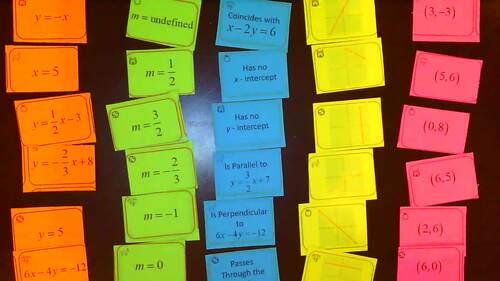 y = -x
x = 5
y = 1/2 x - 3
y = -2/3 x + 8
y = 5
6x - 4y = -12
m = undefined
m = 1/2
m = 3/2
m = -2/3
m = -1
m = 0
Coincides with
x - 2y = 6
Has no
x - intercept
Has no
y - intercept
Is Parallel to
y = 3/2 x + 7
Is Perpendicular
to
6x - 4y = -12
Passes
Through the
(3, -3)
(5, 6)
(0, 8)
(6, 5)
(2, 6)
(6, 0)